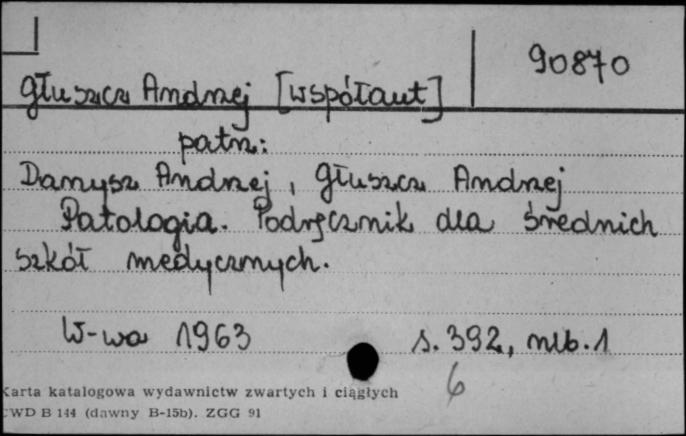 90870
Głuszcz Andrzej [współaut]
patrz:
Danysz Andrzej, Głuszcz Andrzej
Patologia. Podręcznik dla średnich
szkół medycznych.
W-wa 1963 s. 392, nlb. 1
6
Karta katalogowa wydawnictw zwartych i ciągłych
CWD B 144 (dawny B-15b). ZGG 91